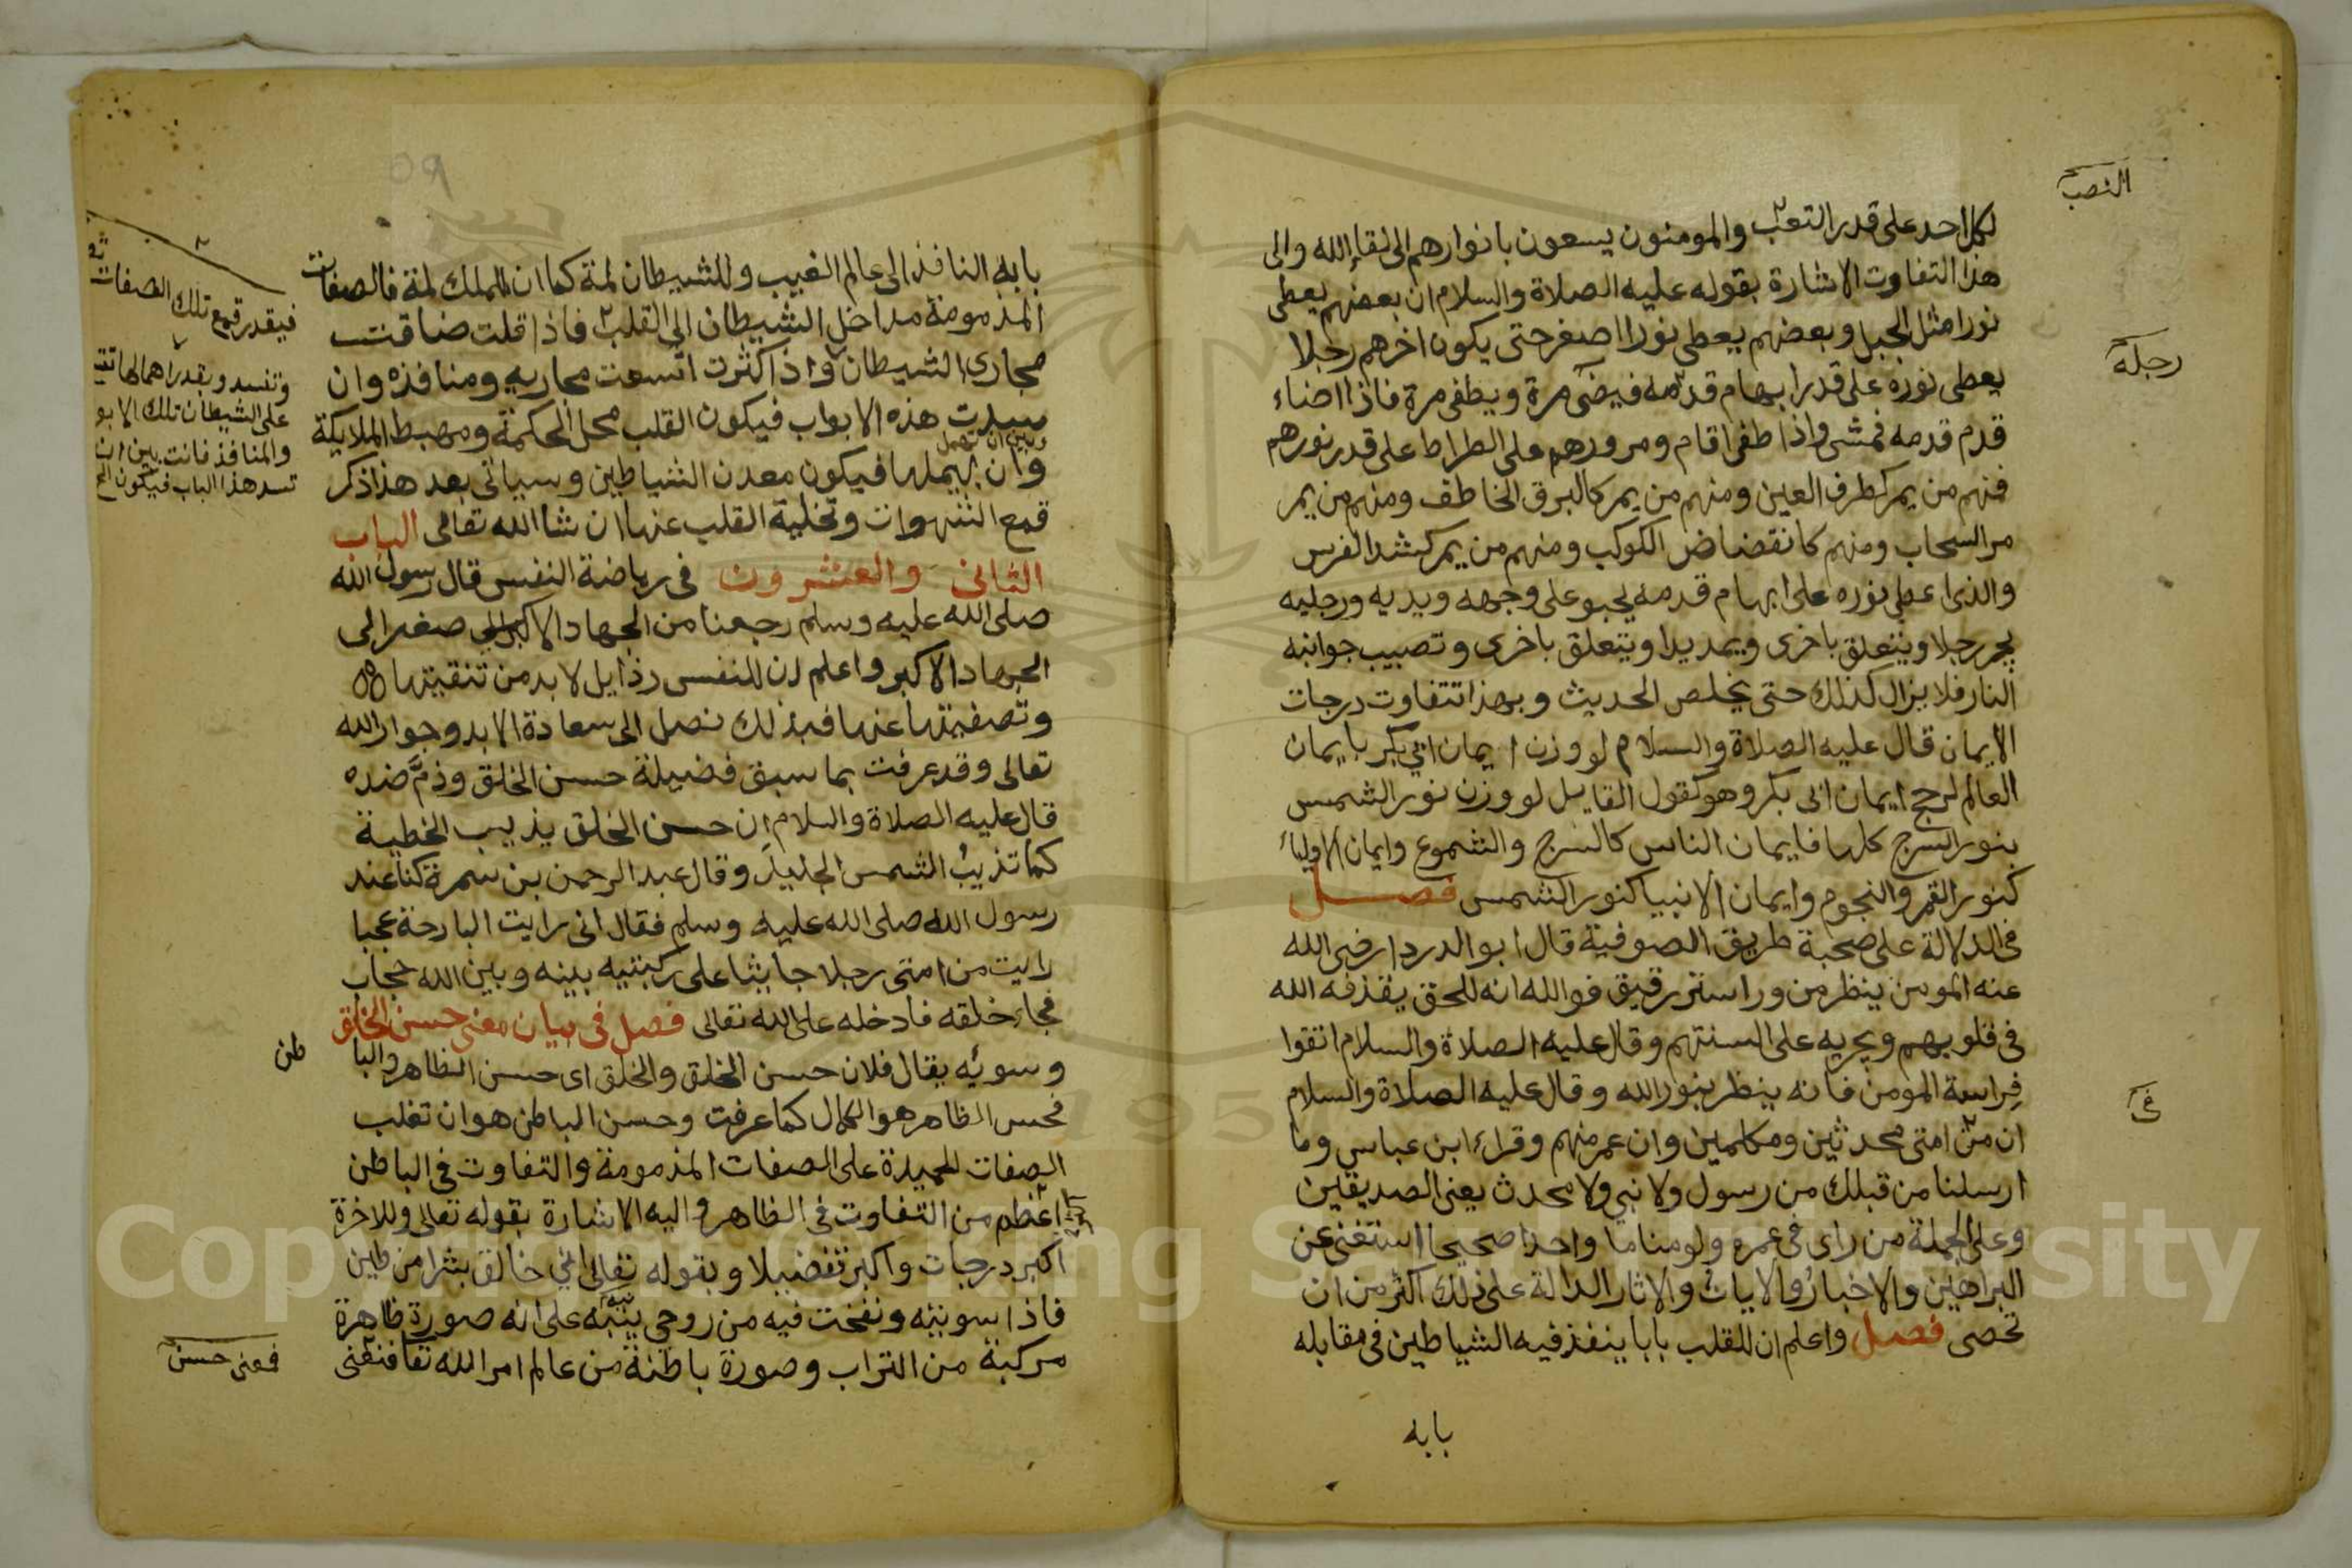 لكل احد على قدر التعب والمومنون يسعون بانوارهم الى لقاء الله والى
النصب
هذا التفاوت الاشارة بقوله عليه الصلاة والسلام ان بعضهم يعطى
نورا مثل الجبل وبعضهم يعطى نورا اصغر حتى يكون اخرهم رجلا
رجله
يعطى نوره على قدر ابهام قدمه فيضئ مرة ويطفى مرة فاذا اضاء
قدم قدمه فمشى واذا طفى اقام ومرورهم على الطراط على قدر نورهم
فمنهم من يمر كطرف العين ومنهم من يمر كالبرق الخاطف ومنهم من يمر
مر السحاب ومنهم كانقضاض الكوكب ومنهم من يمر كشد الفرس
والذى اعطى نوره على ابهام قدمه يحبو على وجهه ويديه ورجليه
يجر رجلا ويتعلق باخرى ويمد يدا ويتعلق باخرى وتصيب جوانبه
النار فلا يزال كذلك حتى يخلص الحديث وبهذا تتفاوت درجات
الايمان قال عليه الصلاة والسلام لو وزن ايمان ابي بكر بايمان
العالم لرجح ايمان ابى بكر وهو كقول القايل لو وزن نور الشمس
بنور السرج كلها فايمان الناس كالسرج والشموع وايمان الاولياء
كنور القمر والنجوم وايمان الانبيا كنور الشمس فصل
فى الدلالة على صحبة طريق الصوفية قال ابو الدردا رضى الله
عنه المومن ينظر من ورا ستر رقيق فوالله انه للحق يقذفه الله
فى قلوبهم ويجريه على السنتهم وقال عليه الصلاة والسلام اتقوا
فراسة المومن فانه ينظر بنور الله وقال عليه الصلاة والسلام
فى
ان من امتى محدثين ومكلمين وان عمر منهم وقراء ابن عباس وما
ارسلنا من قبلك من رسول ولا نبي ولا محدث يعنى الصديقين
وعلى الجملة من راى فى عمره ولو مناما واحدا صحيحا استغنى عن
البراهين والاخبار والايات والاثار الدالة على ذلك اكثر من ان
تحصى فصل واعلم ان للقلب بابا ينفذ فيه الشياطين فى مقابله
بابه
بابه النافذ الى عالم الغيب وللشيطان لمة كما ان للملك لمة فالصفات
المذمومة مداخل الشيطان الى القلب فاذا قلت ضاقت
مجارى الشيطان واذا كثرت اتسعت مجاريه ومنافذه وان
سددت هذه الابواب فيكون القلب محل الحكمة ومهبط الملايكة
وبين ان تهمل
وان يهملها فيكون معدن الشياطين وسياتى بعد هذا ذكر
قمع الشهوات وتخلية القلب عنها ان شا الله تعالى الباب
الثانى والعشرون فى رياضة النفس قال رسول الله
صلى الله عليه وسلم رجعنا من الجهاد الاصغر الى
الجهاد الاكبر واعلم ان للنفس رذايل لا بد من تنقيتها
وتصفيتها عنها فبذلك نصل الى سعادة الابد وجوار الله
تعالى وقد عرفت بما سبق فضيلة حسن الخلق وذم ضده
قال عليه الصلاة والسلام ان حسن الخلق يذيب الخطية
كما تذيب الشمس الجليد وقال عبد الرحمن بن سمرة كنا عند
رسول الله صلى الله عليه وسلم فقال انى رايت البارحة عجبا
رايت من امتى رجلا جاثيا على ركبتيه بينه وبين الله حجاب
فجاء خلقه فادخله على الله تعالى فصل فى بيان معنى حسن الخلق
وسوئه يقال فلان حسن الخلق والخلق اى حسن الظاهر والبا
طن
فحسن الظاهر هو الكمال كما عرفت وحسن الباطن هو ان تغلب
الصفات الحميدة على الصفات المذمومة والتفاوت فى الباطن
اعظم من التفاوت فى الظاهر واليه الاشارة بقوله تعالى وللاخرة
اكبر درجات واكبر تفضيلا وبقوله تعالى انى خالق بشرا من طين
فاذا سويته ونفخت فيه من روحي ينبه على انه صورة ظاهرة
مركبة من التراب وصورة باطنة من عالم امر الله تعا فنعنى
فعنى حسن
فيقدر قمع تلك الصفات
وتفسد وبقدر اهمالها تتـ
على الشيطان تلك الابو
والمنافذ فانت بين ان
تسد هذا الباب فيكون الخ
Copyright © King Saud University
195